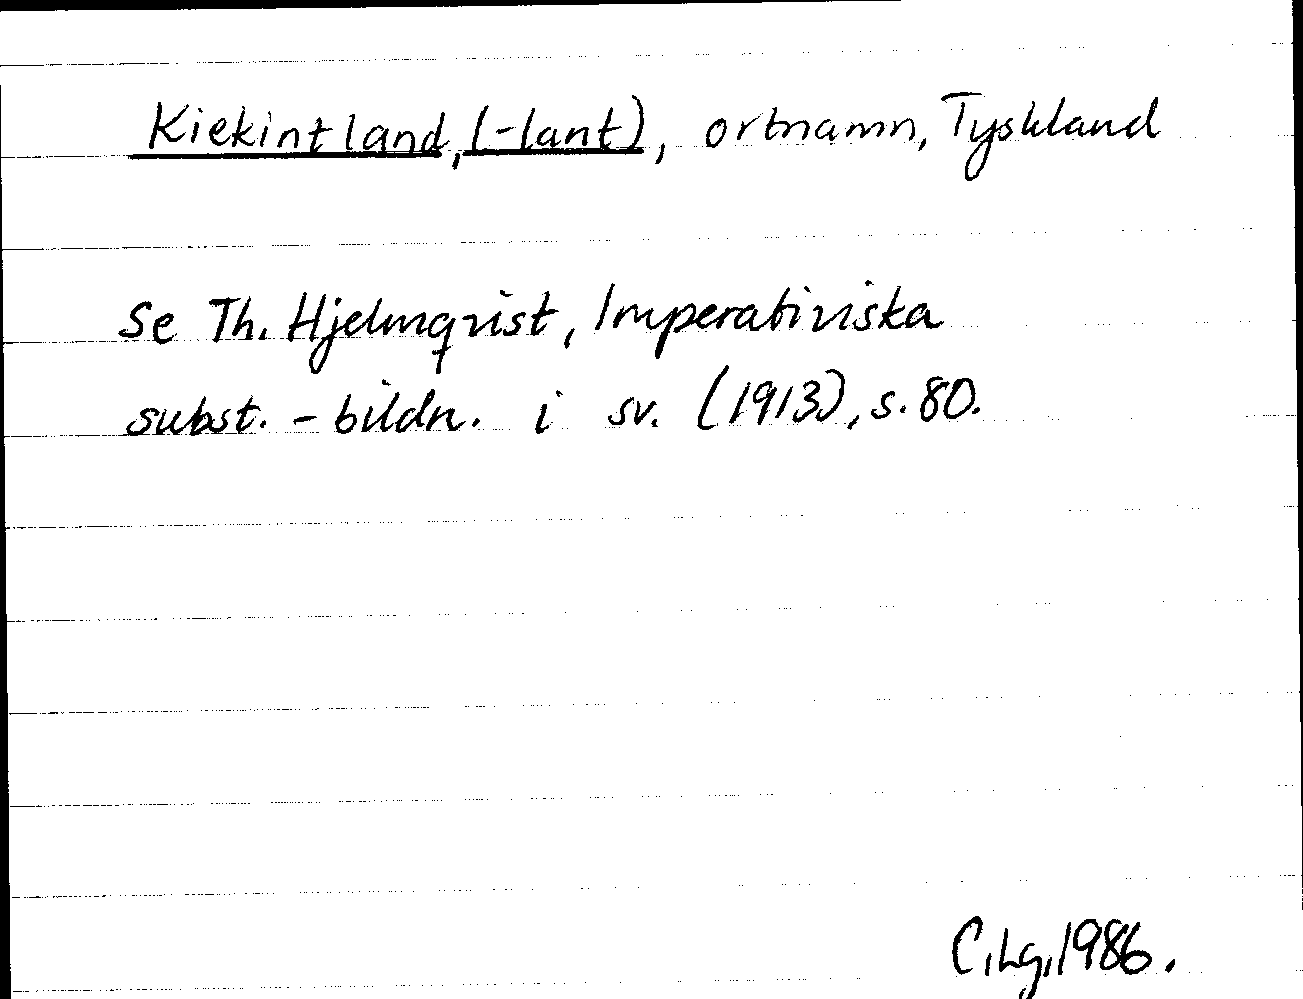 Kiekintland, (-lant), ortnamn, Tyskland
Se Th. Hjelmqvist, Imperativiska
subst. - bildn. i sv. (1913), s. 80.
C. Lg. 1986.